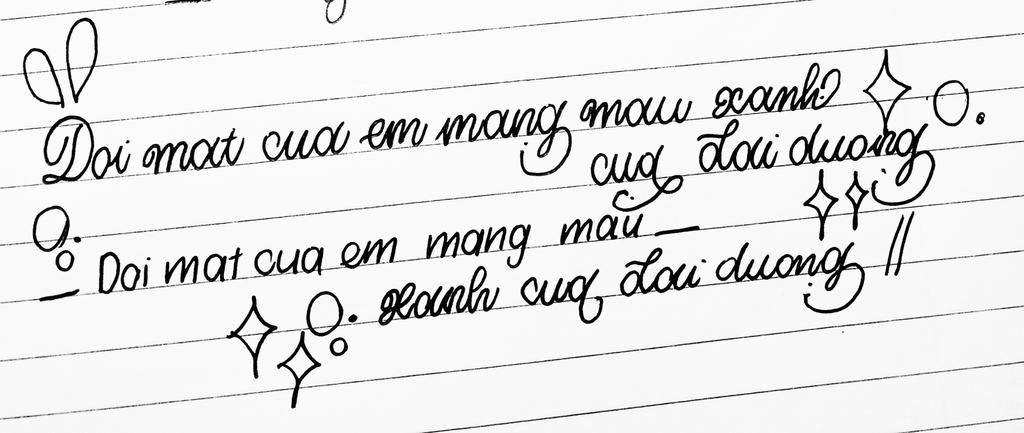 Doi mat cua em mang mau xanh
cua dai duong
Doi mat cua em mang mau
xanh cua dai duong